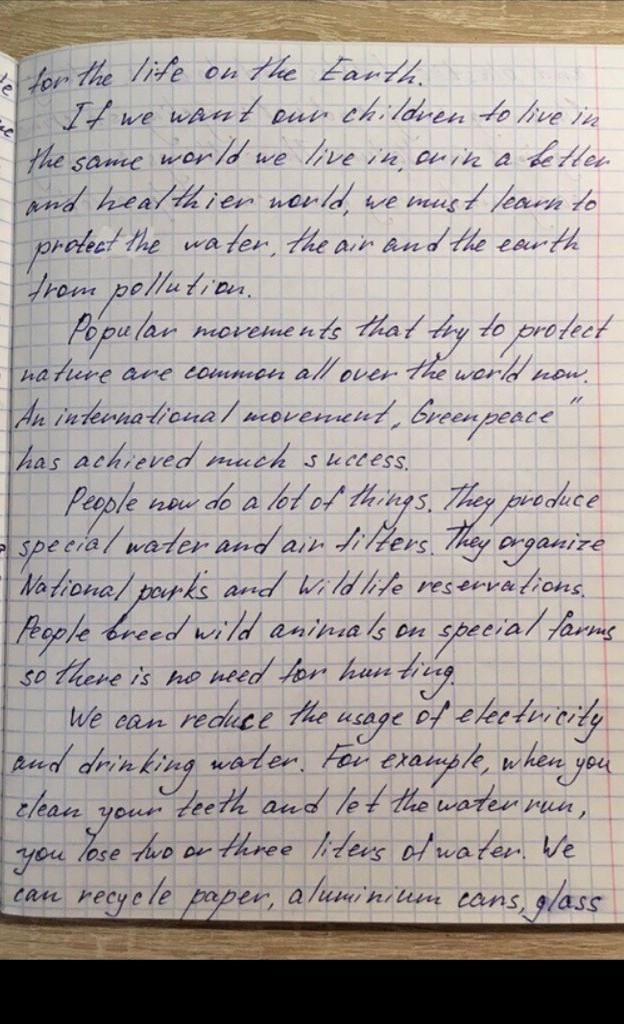 for the life on the Earth.
If we want our children to live in
the same world we live in, or in a better
and healthier world, we must learn to
protect the water, the air and the earth
from pollution.
Popular movements that try to protect
nature are common all over the world now.
An international movement „Greenpeace"
has achieved much success.
People now do a lot of things. They produce
special water and air filters. They organize
National parks and Wildlife reservations.
People breed wild animals on special farms
so there is no need for hunting.
We can reduce the usage of electricity
and drinking water. For example, when you
clean your teeth and let the water run,
you lose two or three liters of water. We
can recycle paper, aluminium cans, glass